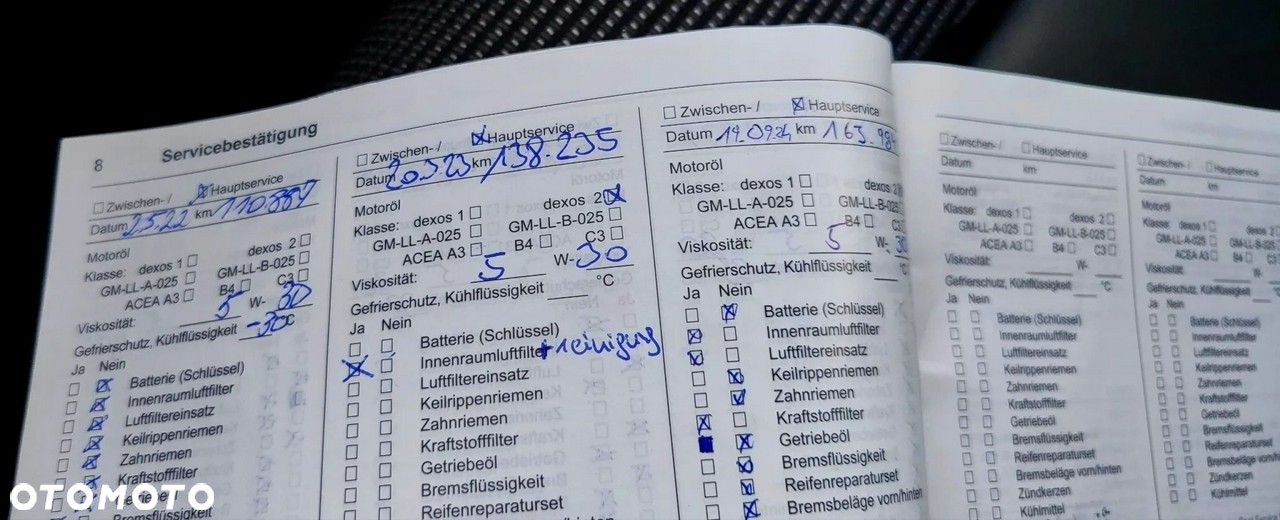 8 Servicebestätigung
☐ Zwischen- / ☒ Hauptservice
Datum 2.5.22 km 110.887
Motoröl
Klasse: dexos 1 ☐ dexos 2 ☐
GM-LL-A-025 ☐ GM-LL-B-025 ☐
ACEA A3 ☐ B4 ☐ C3 ☐
Viskosität: 5 W- 30
Gefrierschutz, Kühlflüssigkeit -30 °C
Ja Nein
☐ ☒ Batterie (Schlüssel)
☐ ☒ Innenraumluftfilter
☐ ☒ Luftfiltereinsatz
☐ ☒ Keilrippenriemen
☐ ☒ Zahnriemen
☐ ☒ Kraftstofffilter
Bremsflüssigkeit
☐ Zwischen- / ☒ Hauptservice
Datum km 138.235
Motoröl
Klasse: dexos 1 ☐ dexos 2 ☒
GM-LL-A-025 ☐ GM-LL-B-025 ☐
ACEA A3 ☐ B4 ☐ C3 ☐
Viskosität: 5 W- 30
Gefrierschutz, Kühlflüssigkeit °C
Ja Nein
☐ ☐ Batterie (Schlüssel)
☒ ☐ Innenraumluftfilter + reinigung
☐ ☐ Luftfiltereinsatz
☐ ☐ Keilrippenriemen
☐ ☐ Zahnriemen
☐ ☐ Kraftstofffilter
☐ ☐ Getriebeöl
☐ ☐ Bremsflüssigkeit
☐ ☐ Reifenreparaturset
☐ Zwischen- / ☒ Hauptservice
Datum 19.09.24 km 163.984
Motoröl
Klasse: dexos 1 ☐ dexos 2
GM-LL-A-025 ☐ GM-LL-B-025
ACEA A3 ☐ B4 ☐ C3
Viskosität: 5 W- 30
Gefrierschutz, Kühlflüssigkeit °C
Ja Nein
☐ ☒ Batterie (Schlüssel)
☒ ☐ Innenraumluftfilter
☒ ☐ Luftfiltereinsatz
☐ ☒ Keilrippenriemen
☐ ☒ Zahnriemen
☒ ☐ Kraftstofffilter
■ ☒ Getriebeöl
☐ ☒ Bremsflüssigkeit
☐ ☒ Reifenreparaturset
☐ ☒ Bremsbeläge vorn/hinten
☐ Zwischen- / ☐ Hauptservice
Datum km
Motoröl
Klasse: dexos 1 ☐ dexos 2 ☐
GM-LL-A-025 ☐ GM-LL-B-025 ☐
ACEA A3 ☐ B4 ☐ C3 ☐
Viskosität: W-
Gefrierschutz, Kühlflüssigkeit °C
Ja Nein
☐ ☐ Batterie (Schlüssel)
☐ ☐ Innenraumluftfilter
☐ ☐ Luftfiltereinsatz
☐ ☐ Keilrippenriemen
☐ ☐ Zahnriemen
☐ ☐ Kraftstofffilter
☐ ☐ Getriebeöl
☐ ☐ Bremsflüssigkeit
☐ ☐ Reifenreparaturset
☐ ☐ Bremsbeläge vorn/hinten
☐ ☐ Zündkerzen
☐ ☐ Kühlmittel
☐ Zwischen- / ☐ Hauptservice
Datum km
Motoröl
Klasse: dexos 1 ☐
GM-LL-A-025 ☐ GM-LL-B-025
ACEA A3 ☐ B4 ☐
Viskosität:
Gefrierschutz, Kühlflüssigkeit
Ja Nein
☐ ☐ Batterie (Schlüssel)
☐ ☐ Innenraumluftfilter
☐ ☐ Luftfiltereinsatz
☐ ☐ Keilrippenriemen
☐ ☐ Zahnriemen
☐ ☐ Kraftstofffilter
☐ ☐ Getriebeöl
☐ ☐ Bremsflüssigkeit
☐ ☐ Reifenreparaturset
☐ ☐ Bremsbeläge vorn/hinten
☐ ☐ Zündkerzen
☐ ☐ Kühlmittel
OTOMOTO